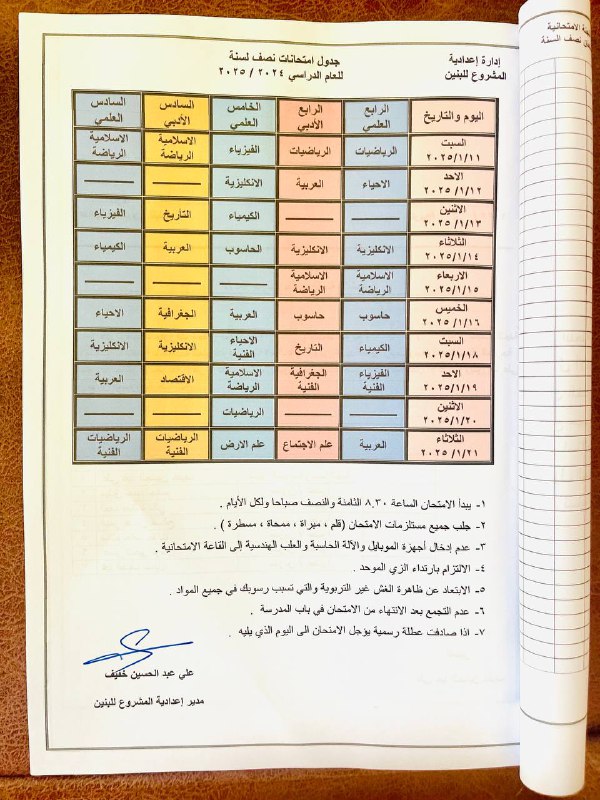 إدارة إعدادية
المشروع للبنين
جدول امتحانات نصف لسنة
للعام الدراسي ٢٠٢٤ / ٢٠٢٥
اليوم والتاريخ | الرابع العلمي | الرابع الأدبي | الخامس العلمي | السادس الأدبي | السادس العلمي
السبت ٢٠٢٥/١/١١ | الرياضيات | الرياضيات | الفيزياء | الاسلامية الرياضة | الاسلامية الرياضة
الاحد ٢٠٢٥/١/١٢ | الاحياء | العربية | الانكليزية | ——— | ———
الاثنين ٢٠٢٥/١/١٣ | ——— | ——— | الكيمياء | التاريخ | الفيزياء
الثلاثاء ٢٠٢٥/١/١٤ | الانكليزية | الانكليزية | الحاسوب | العربية | الكيمياء
الاربعاء ٢٠٢٥/١/١٥ | الاسلامية الرياضة | الاسلامية الرياضة | ——— | ——— | ———
الخميس ٢٠٢٥/١/١٦ | حاسوب | حاسوب | العربية | الجغرافية | الاحياء
السبت ٢٠٢٥/١/١٨ | الكيمياء | التاريخ | الاحياء الفنية | الانكليزية | الانكليزية
الاحد ٢٠٢٥/١/١٩ | الفيزياء الفنية | الجغرافية الفنية | الاسلامية الرياضة | الاقتصاد | العربية
الاثنين ٢٠٢٥/١/٢٠ | ——— | ——— | الرياضيات | ——— | ———
الثلاثاء ٢٠٢٥/١/٢١ | العربية | علم الاجتماع | علم الارض | الرياضيات الفنية | الرياضيات الفنية
١- يبدأ الامتحان الساعة ٨,٣٠ الثامنة والنصف صباحا ولكل الأيام .
٢- جلب جميع مستلزمات الامتحان (قلم ، مبراة ، ممحاة ، مسطرة ) .
٣- عدم إدخال أجهزة الموبايل والآلة الحاسبة والعلب الهندسية إلى القاعة الامتحانية .
٤- الالتزام بارتداء الزي الموحد .
٥- الابتعاد عن ظاهرة الغش غير التربوية والتي تسبب رسوبك في جميع المواد .
٦- عدم التجمع بعد الانتهاء من الامتحان في باب المدرسة .
٧- اذا صادفت عطلة رسمية يؤجل الامتحان الى اليوم الذي يليه .
علي عبد الحسين خفيف
مدير إعدادية المشروع للبنين